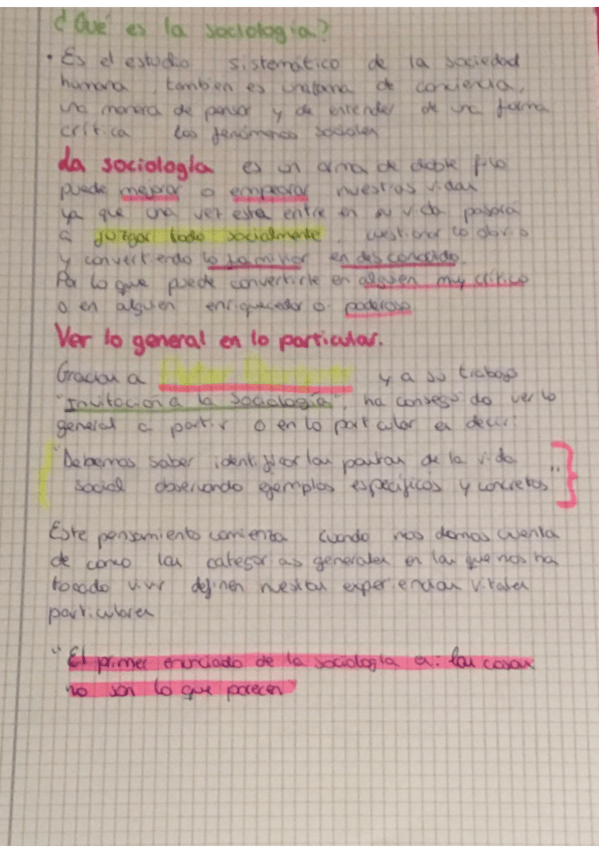 ¿Qué es la sociología?
· Es el estudio sistemático de la sociedad
humana, tambien es una forma de conciencia,
una manera de pensar y de entender de una forma
crítica los fenómenos sociales
La sociología es un arma de doble filo
puede mejorar o empeorar nuestras vidas
ya que una vez esta entre en su vida pasara
a juzgar todo socialmente, cuestionar lo obvio
y convertiendo lo familiar en desconocido.
Por lo que puede convertirte en alguien muy crítico
o en alguien enriquecedor o poderoso
Ver lo general en lo particular.
Gracias a y a su trabajo
"Invitación a la Sociología", ha conseguido ver lo
general a partir o en lo particular es decir:
"Debemos saber identificar las pautas de la vida
social observando ejemplos específicos y concretos"
Este pensamiento comienza cuando nos damos cuenta
de como las categorias generales en las que nos ha
tocado vivir definen nuestras experiencias vitales
particulares
"El primer enunciado de la sociología es: las cosas
no son lo que parecen"